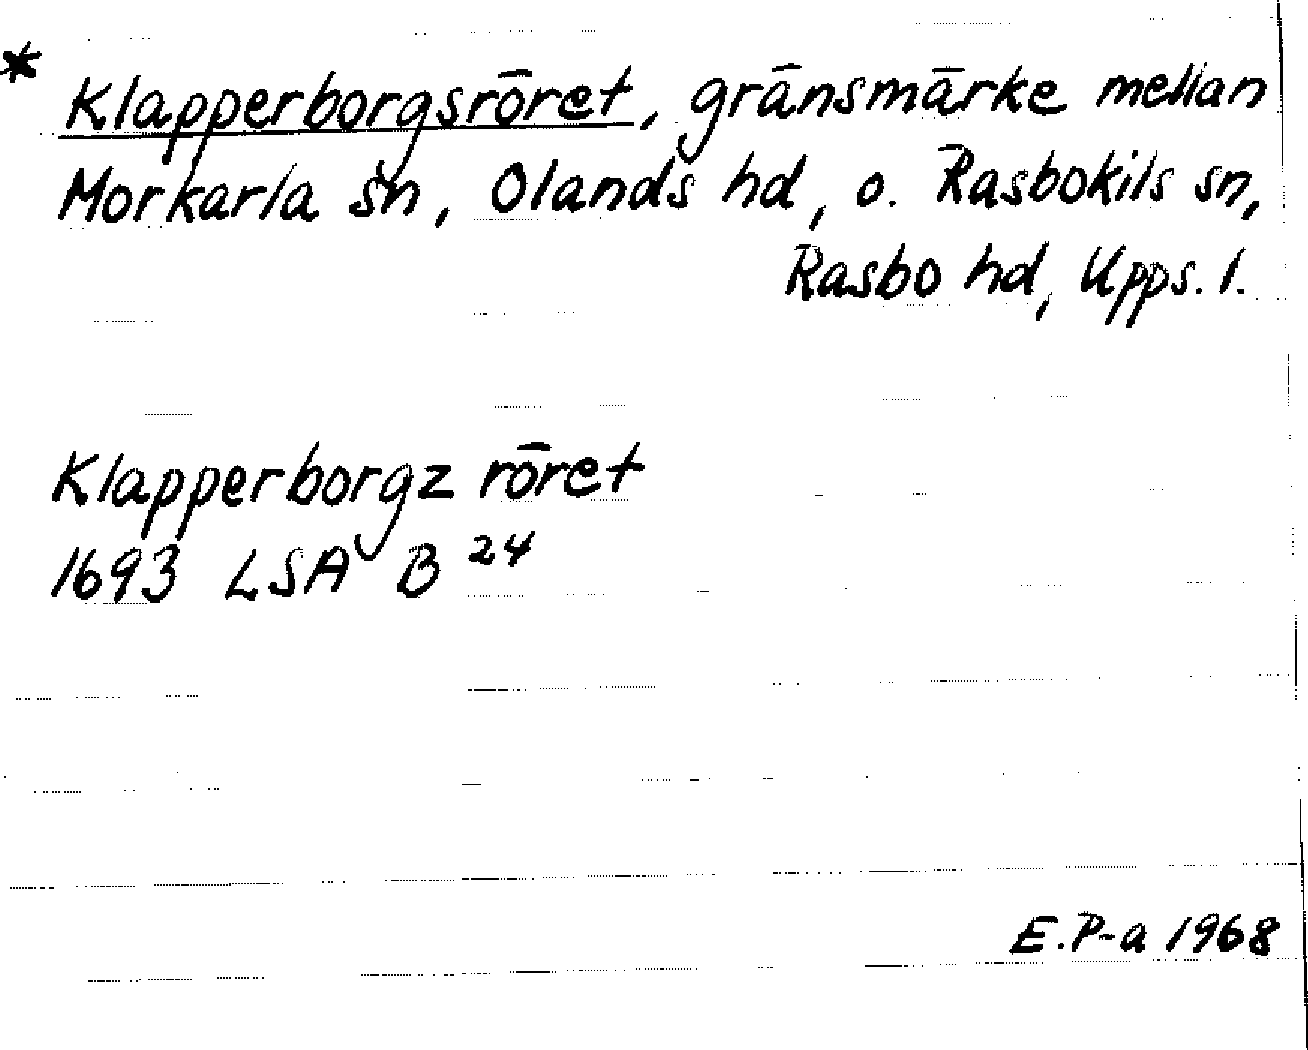 * Klapperborgsröret, gränsmärke mellan
Morkarla sn, Olands hd, o. Rasbokils sn,
Rasbo hd, Upps. l.
Klapperborgz röret
1693 LSA B 24
E.P-a 1968